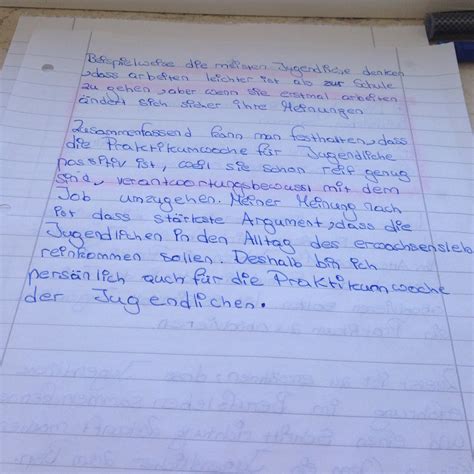 Beispielweise die meisten Jugendliche denken
, dass arbeiten leichter ist als zur Schule
zu gehen, aber wenn sie erstmal arbeiten
ändert sich sicher ihre Meinungen
Zusammenfassend kann man festhalten, dass
die Praktikumwoche für Jugendliche
possitiv ist, weil sie schon reif genug
sind, verantwortungsbewusst mit dem
Job umzugehen. Meiner Meinung nach
ist dass stärkste Argument, dass die
Jugendlichen in den Alltag des erwachsensleb
reinkommen sollen. Deshalb bin ich
persönlich auch für die Praktikumwoche
der Jugendlichen.